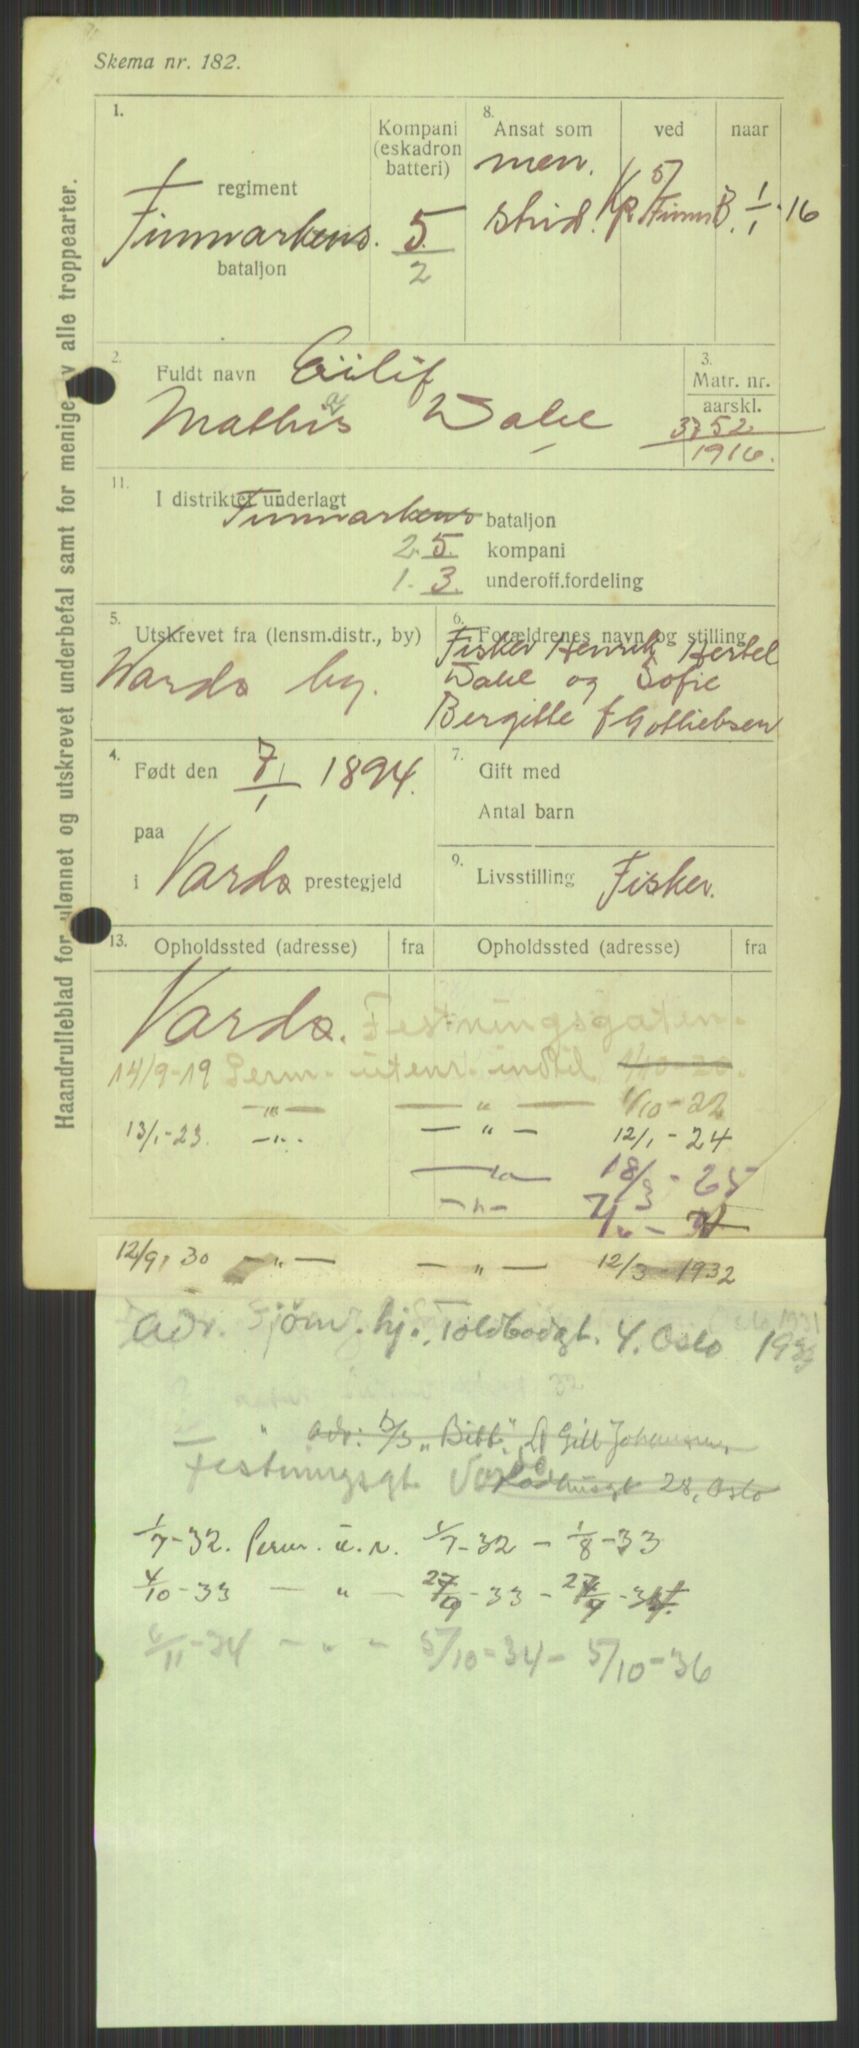 Skema nr. 182.
Haandrulleblad for ulønnet og utskrevet underbefal samt for menige av alle troppearter.
1.
regiment
Finnmarkens.
bataljon
Kompani
(eskadron
batteri)
5
2
8.
Ansat som
ved
naar
men.
strid.
Kp. 5/Finm B. 1/1-16
2.
Fuldt navn Eilif
Mathis Dahl
3.
Matr. nr.
aarskl.
52
1916.
11.
I distriktet underlagt
Finmarkens bataljon
2. 5. kompani
1. 3. underoff.fordeling
5.
Utskrevet fra (lensm.distr., by)
Vardø by.
6.
Forældrenes navn og stilling
Fisker Henrik Hertel
Dahl og Sofie
Bergitte f Gottliebsen
4.
Født den 7/1 1894.
paa
i Vardø prestegjeld
7.
Gift med
Antal barn
9.
Livsstilling Fisker.
13.
Opholdssted (adresse) fra Opholdssted (adresse) fra
Vardø. Festningsgaten.
14/9-19 Perm. utenr. indtil 1/10-20.
—"— — " — 1/10-22
13/1-23. —"— — " — 12/1-24
—"— 18/3-25
—"—
12/9-30 —"— — " — 12/3-1932
Adr. Sjøm. hj., Toldbodgt. 4. Oslo
" adr: D/S "Bitt"
Festningsgt. Vardø
Raadhusgt 28, Oslo
1/7-32. Perm. u.r. 1/7-32 — 1/8-33
4/10-33 — " — 27/9-33 — 27/9-34.
6/11-34 — " — 5/10-34 — 5/10-36